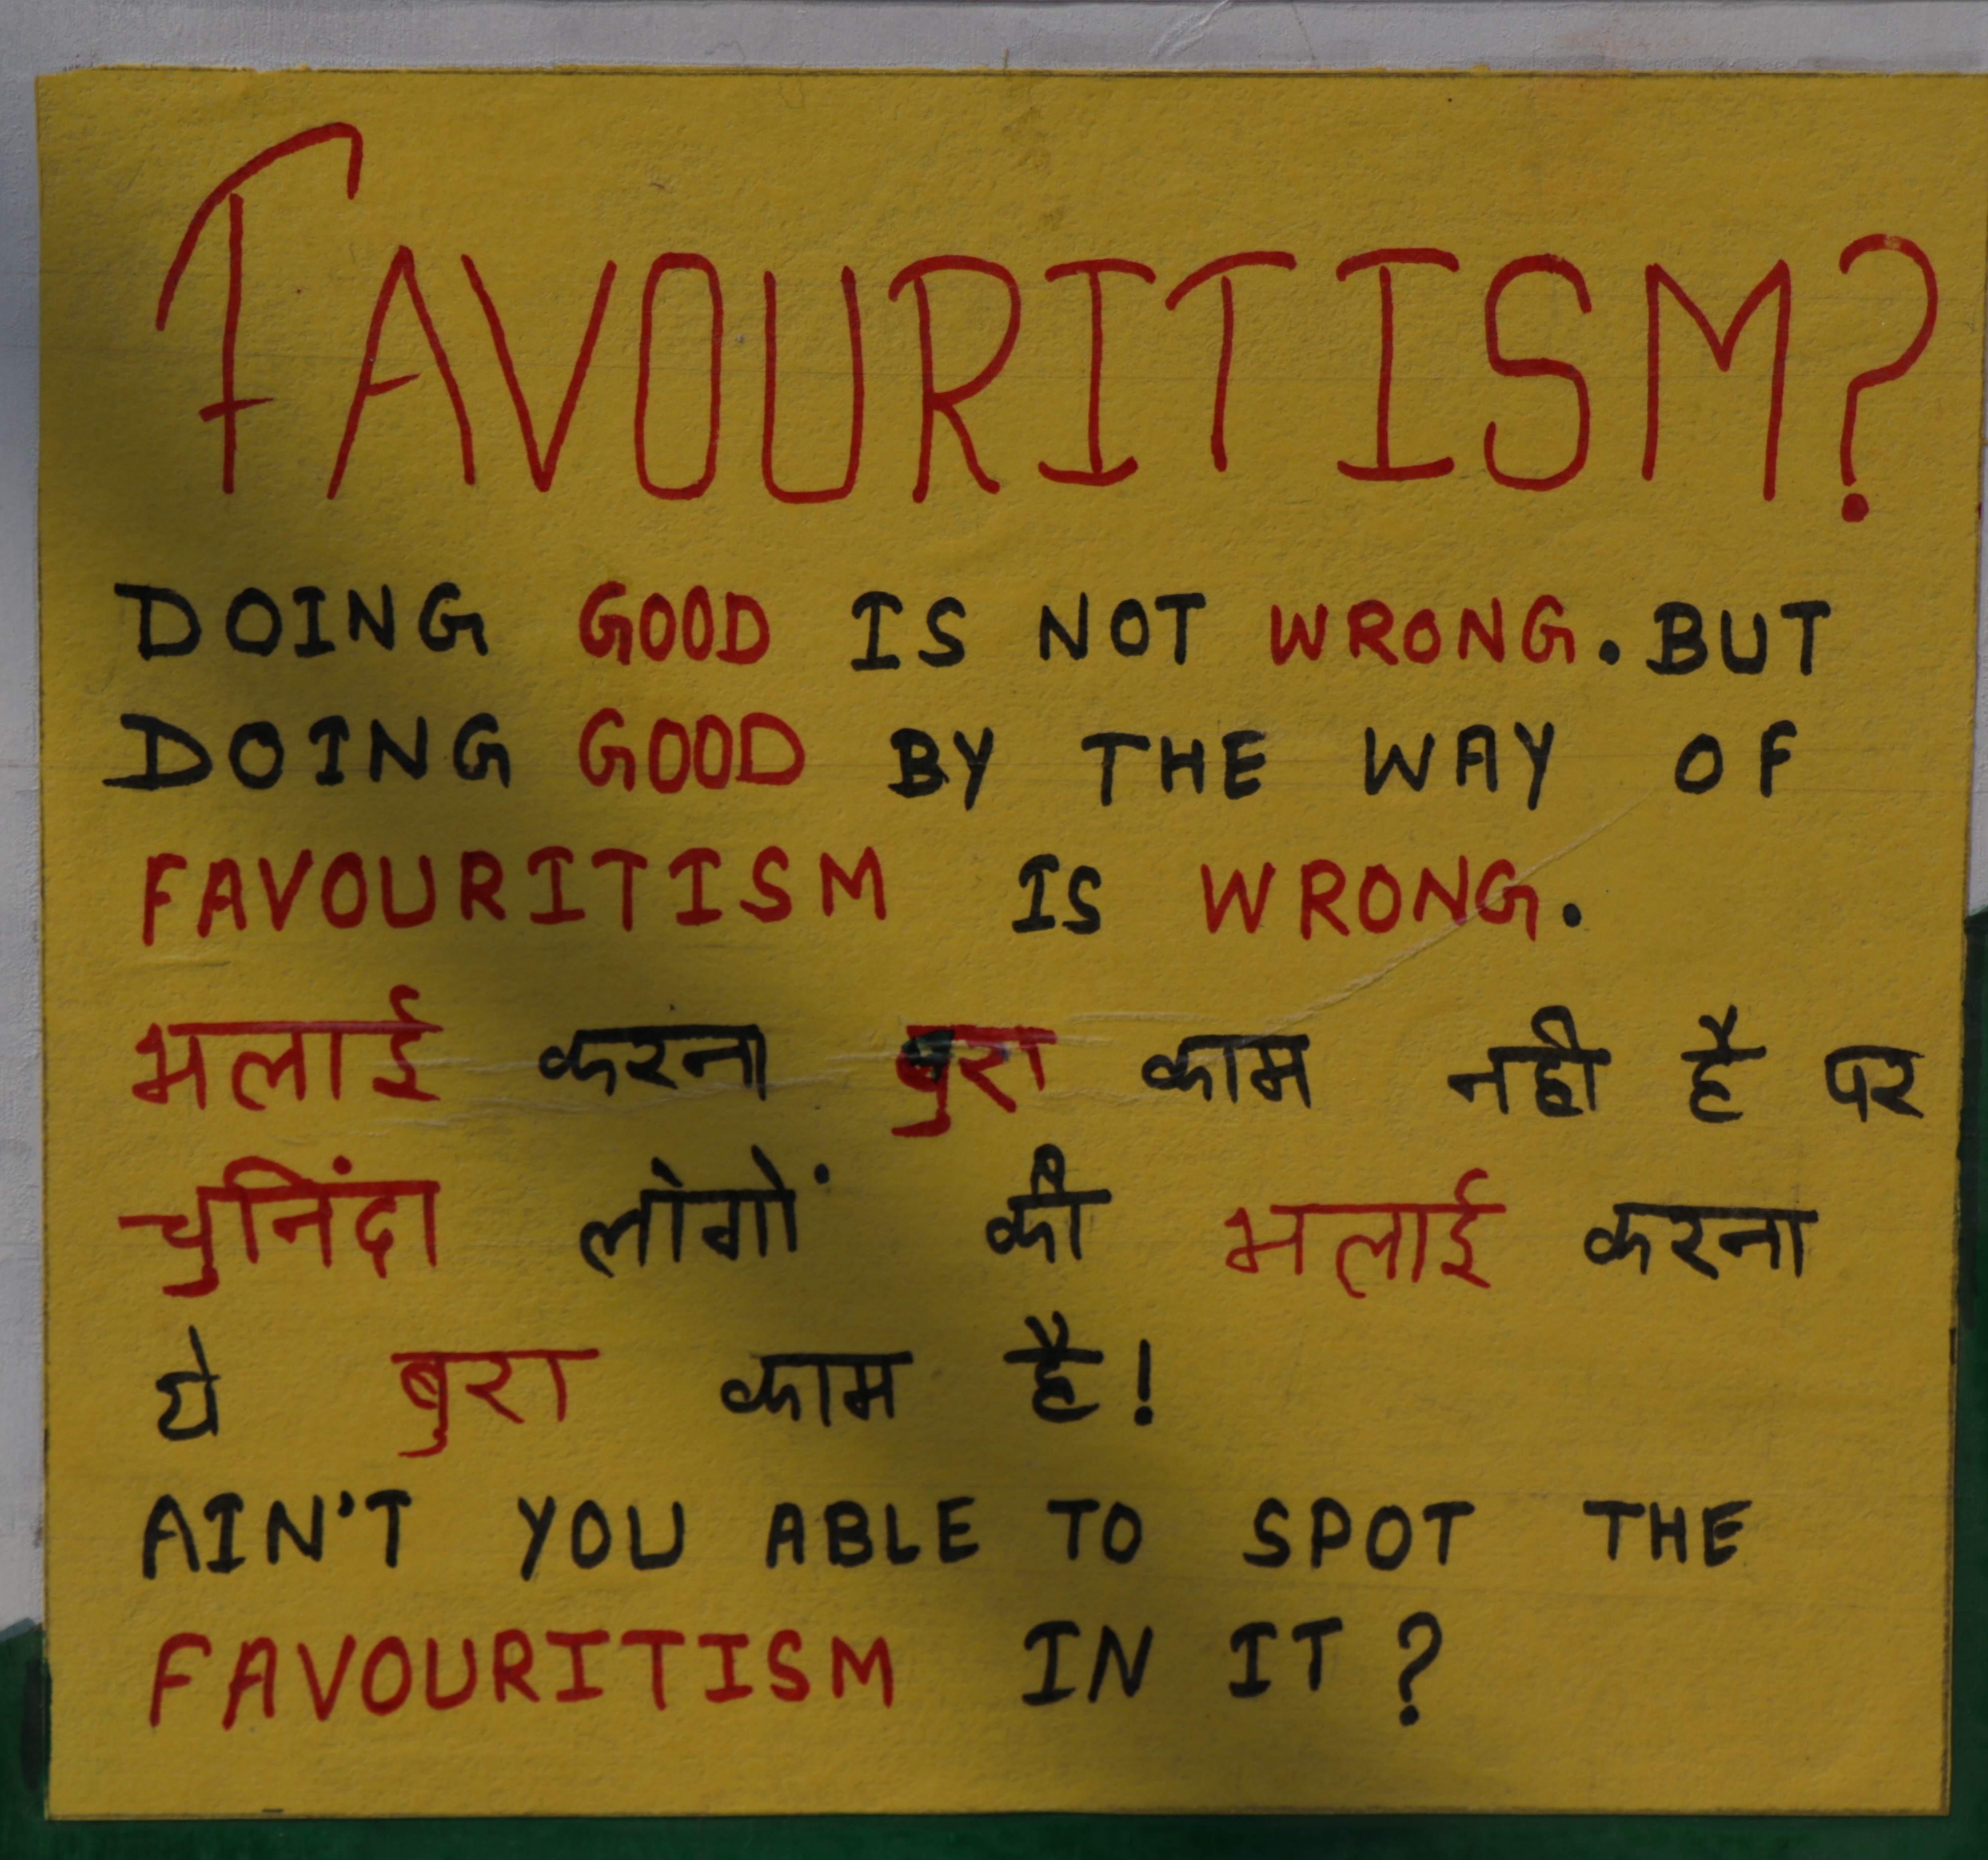 FAVOURITISM?
DOING GOOD IS NOT WRONG. BUT
DOING GOOD BY THE WAY OF
FAVOURITISM IS WRONG.
भलाई करना बुरा काम नही है पर
चुनिंदा लोगों की भलाई करना
ये बुरा काम है!
AIN'T YOU ABLE TO SPOT THE
FAVOURITISM IN IT?